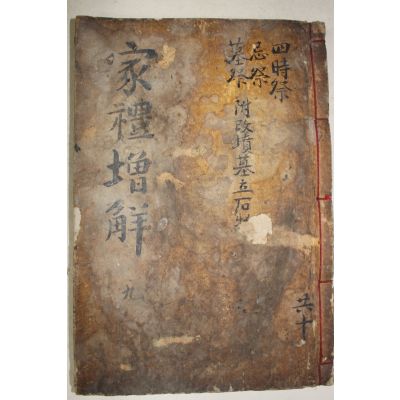 家禮增解
九
四時祭
忌祭
墓祭
附改墳墓立石物
共十